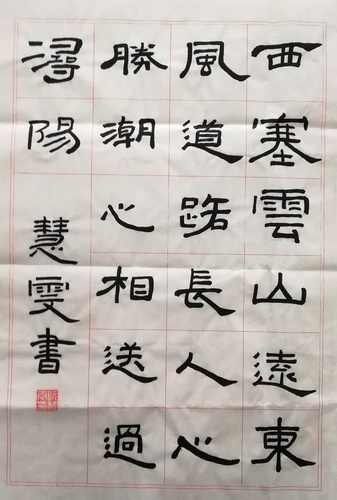 西塞雲山遠東
風道路長人心
勝潮心相送過
潯陽
慧雯書